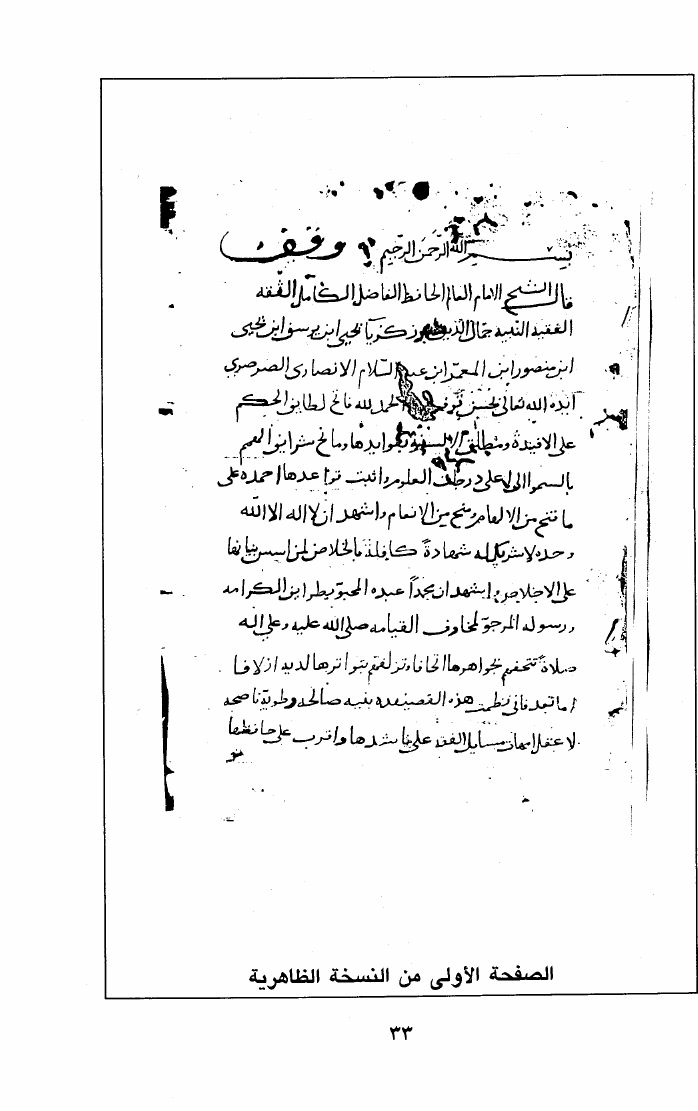 بسم الله الرحمن الرحيم وقف
قال الشيخ الامام العالم الحافظ الفاضل الكامل الثقة
الفقيه النبيه جمال الدين زكريا يحيى ابن يوسف ابن يحيى
ابن منصور ابن المعمر ابن عبد السلام الانصاري الصرصري
ايده الله تعالى بحسن توفيقه الحمد لله فاتح لطايف الحكم
على الافيدة ومطلق الالسنة بفوايدها ومانح شرايف الهمم
بالسمو الى اعلى درجات العلوم واثبت قواعدها احمده على
ما فتح من الالهام ومنح من الانعام واشهد ان لا اله الا الله
وحده لا شريك له شهادة كافلة بالخلاص لمن اسس بنيانها
على الاخلاص واشهد ان محمدا عبده المحبو بطرايف الكرامه
ورسوله المرجو لمخاوف القيامه صلى الله عليه وعلى اله
صلاة تتحفهم بجواهرها اتحافا وتزلفهم بتواترها لديه ازلافا
اما بعد فاني نظمت هذه القصيده بنية صالحه وطوية ناصحه
لا عقل امهات مسايل الفقه على ناشدها واقرب على حافظها
الصفحة الأولى من النسخة الظاهرية
٣٣